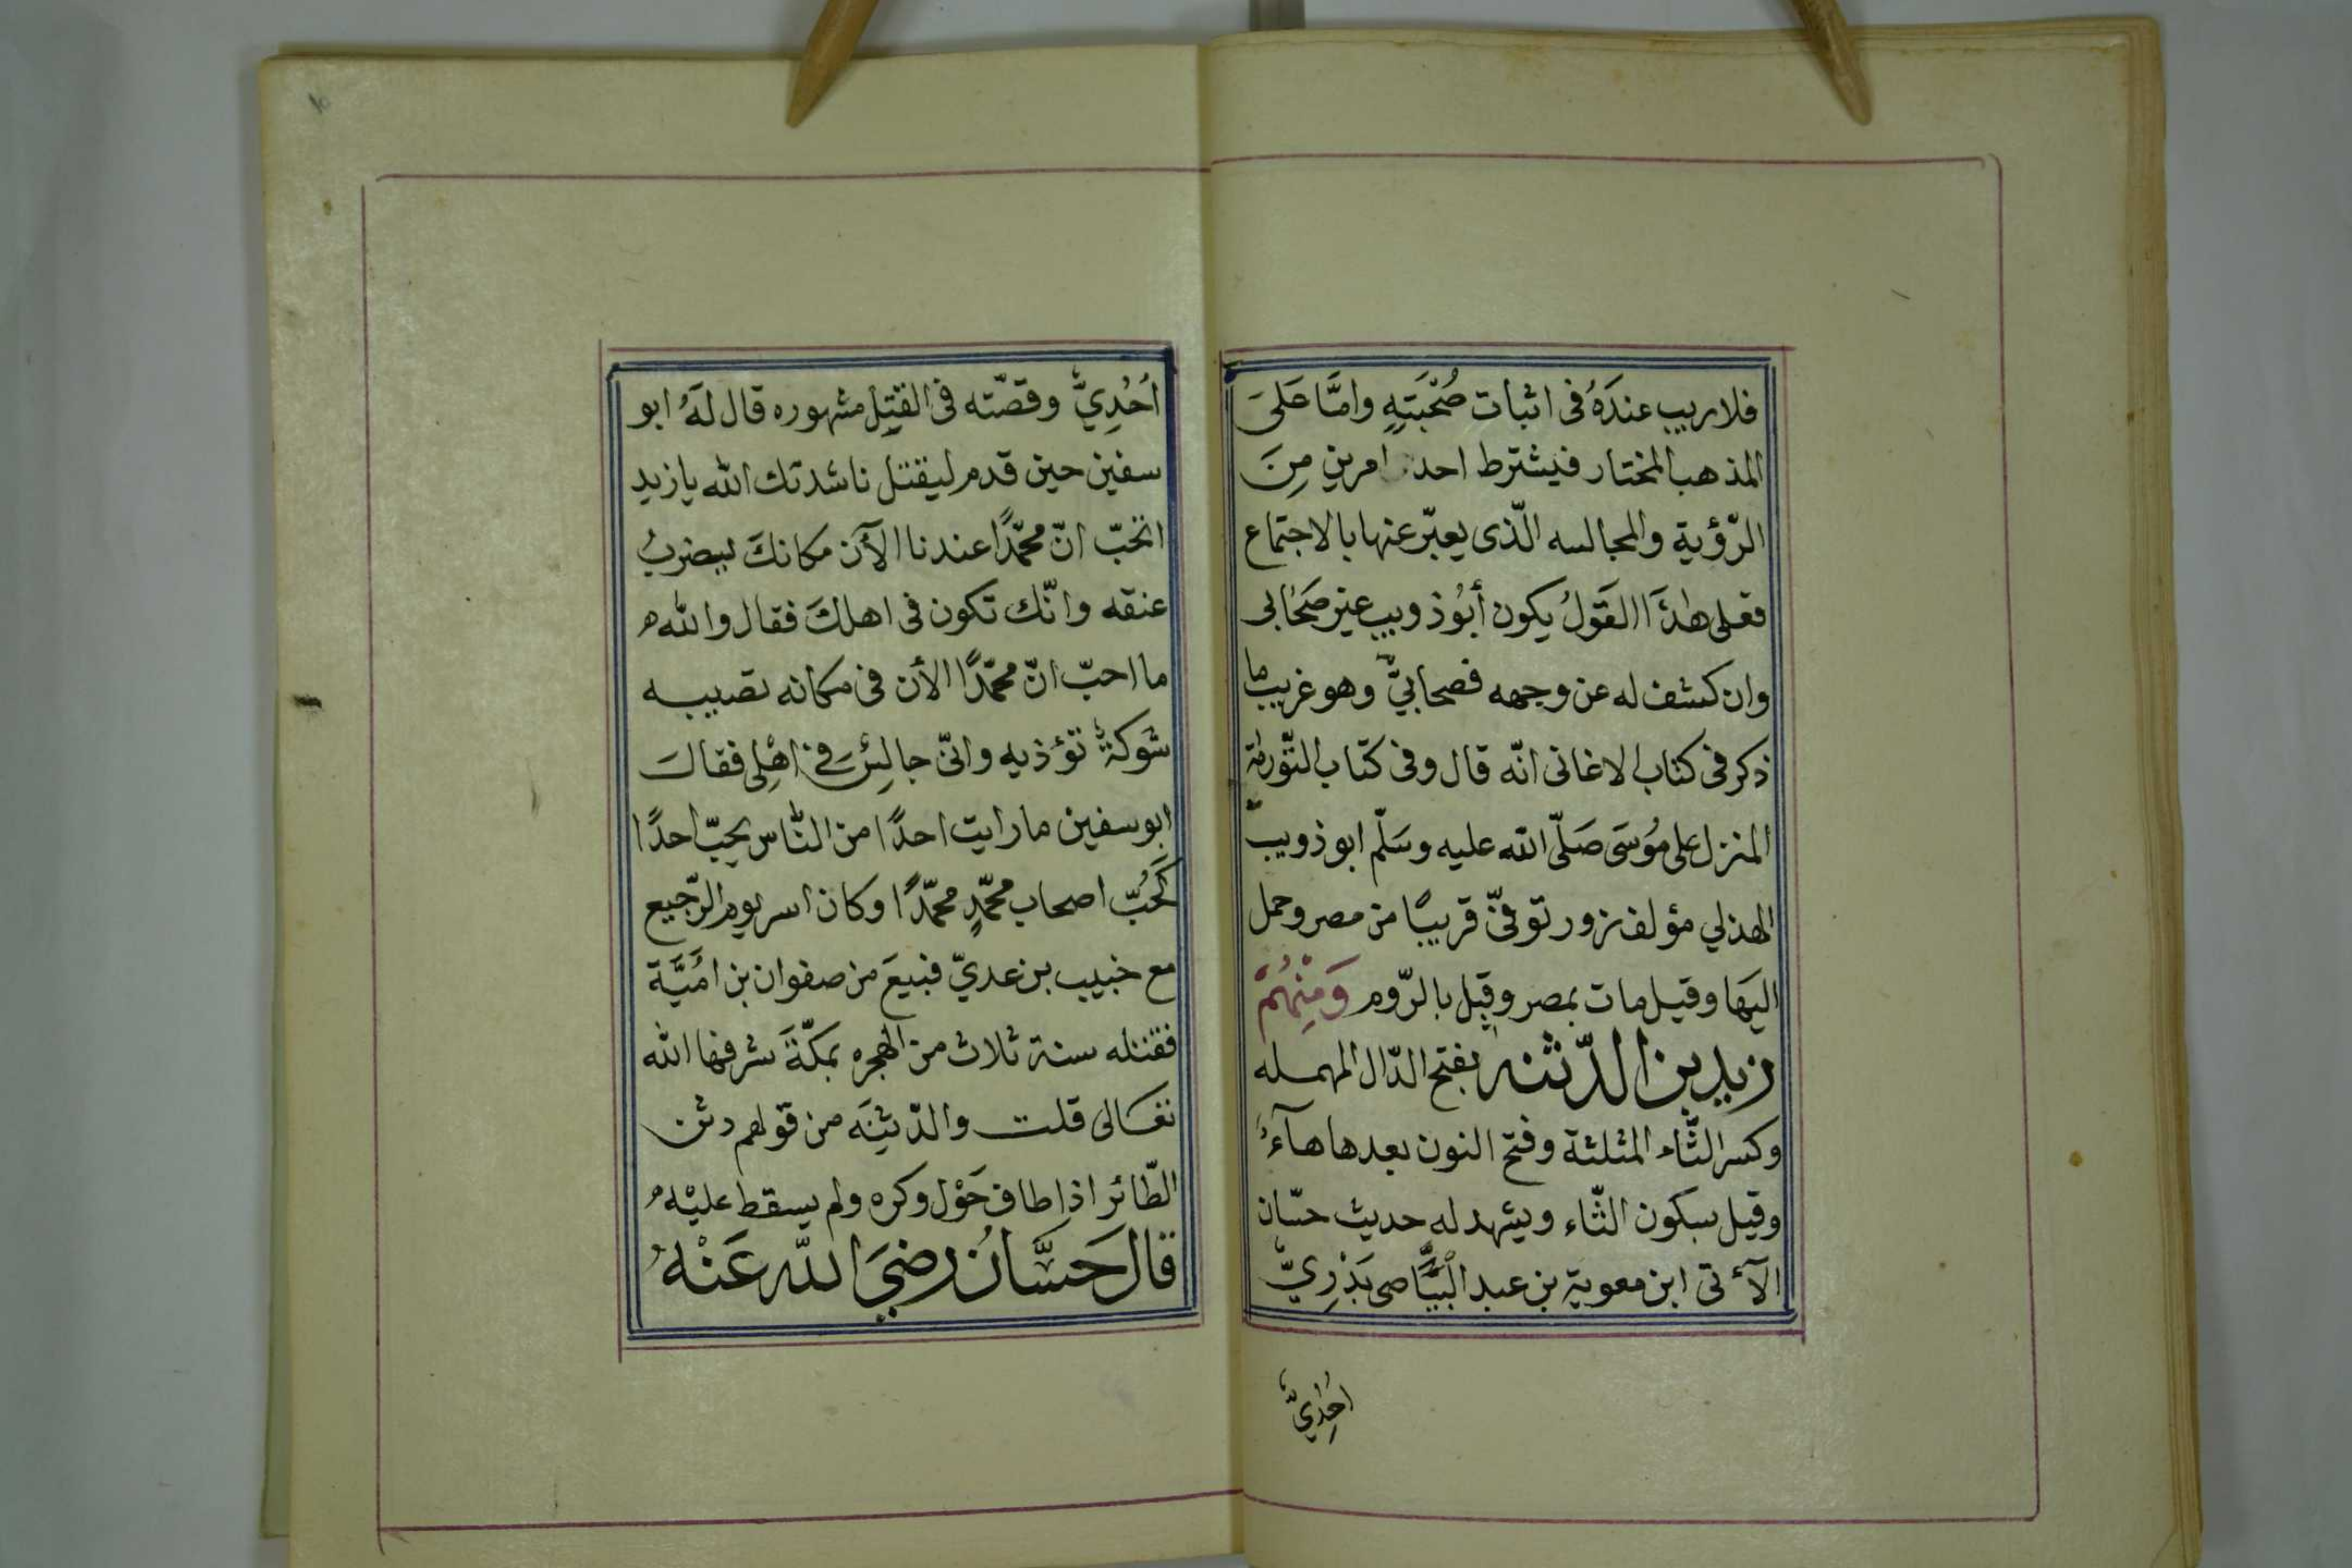 فلاريب عندَهُ فى اثبات صُحْبَتِهِ وامَّا عَلىَ
المذهب المختار فيشترط احد امرين مِنَ
الرّؤية والمجالسه الّذى يعبّر عنها بالاجتماع
فعلى هٰذَا القَولُ يكون أبُو ذويب غير صَحٰابى
وان كشف له عن وجهه فصحابيٌّ وهو غريب ما
ذكر فى كتاب الاغانى انّه قال وفى كتاب التّورٰىة
المنزل على مُوسَى صَلّى الله عليه وسَلّم ابو ذويب
الهذلي مؤلف زور توفىّ قريبًا من مصر وحمل
اليهَا وقيل مات بمصر وقيل بالرّوم وَمِنْهُمْ
زيد بن الدّثنه بفتح الدّال المهمله
وكسر الثّاء المثلثة وفتح النون بعدها هآءُ
وقيل بسكون الثّاء ويشهد له حديث حسّان
الآتى ابن معوية بن عبد الْبَيَّاصى بَدْرِيٌّ
اُحُدِيٌّ
اُحُدِيٌّ وقصّته فى القتِل مشهوره قال لَهُ ابو
سفين حين قدم ليقتل ناشدتك الله يا زيد
اتحبّ انّ محمّدًا عندنا الآن مكانكَ ليضربُ
عنقه وانّك تكون فى اهلكَ فقال والله
ما احبّ انّ محمّدًا الأن فى مكانه تصيبه
شَوكَةٌ تؤذيهِ وانّى جالِسٌ فى اهْلِى فقالَ
ابو سفين ما رايت احدًا من النّاس يحبّ احدًا
كَحُبّ اصحاب محمّدٍ محمّدًا وكان اسر يوم الرّجيع
مع خبيب بن عديّ فبيعَ من صفوان بن امَيَّة
فقتله سنة ثلاث من الهجره بمكّةَ شرفها الله
تعَالى قلت والدّثِنَه من قولهم دثن
الطّائر اذا طاف حَوْل وكره ولم يسقط عليْه
قال حَسَّانُ رضيَ اللّه عَنْهُ